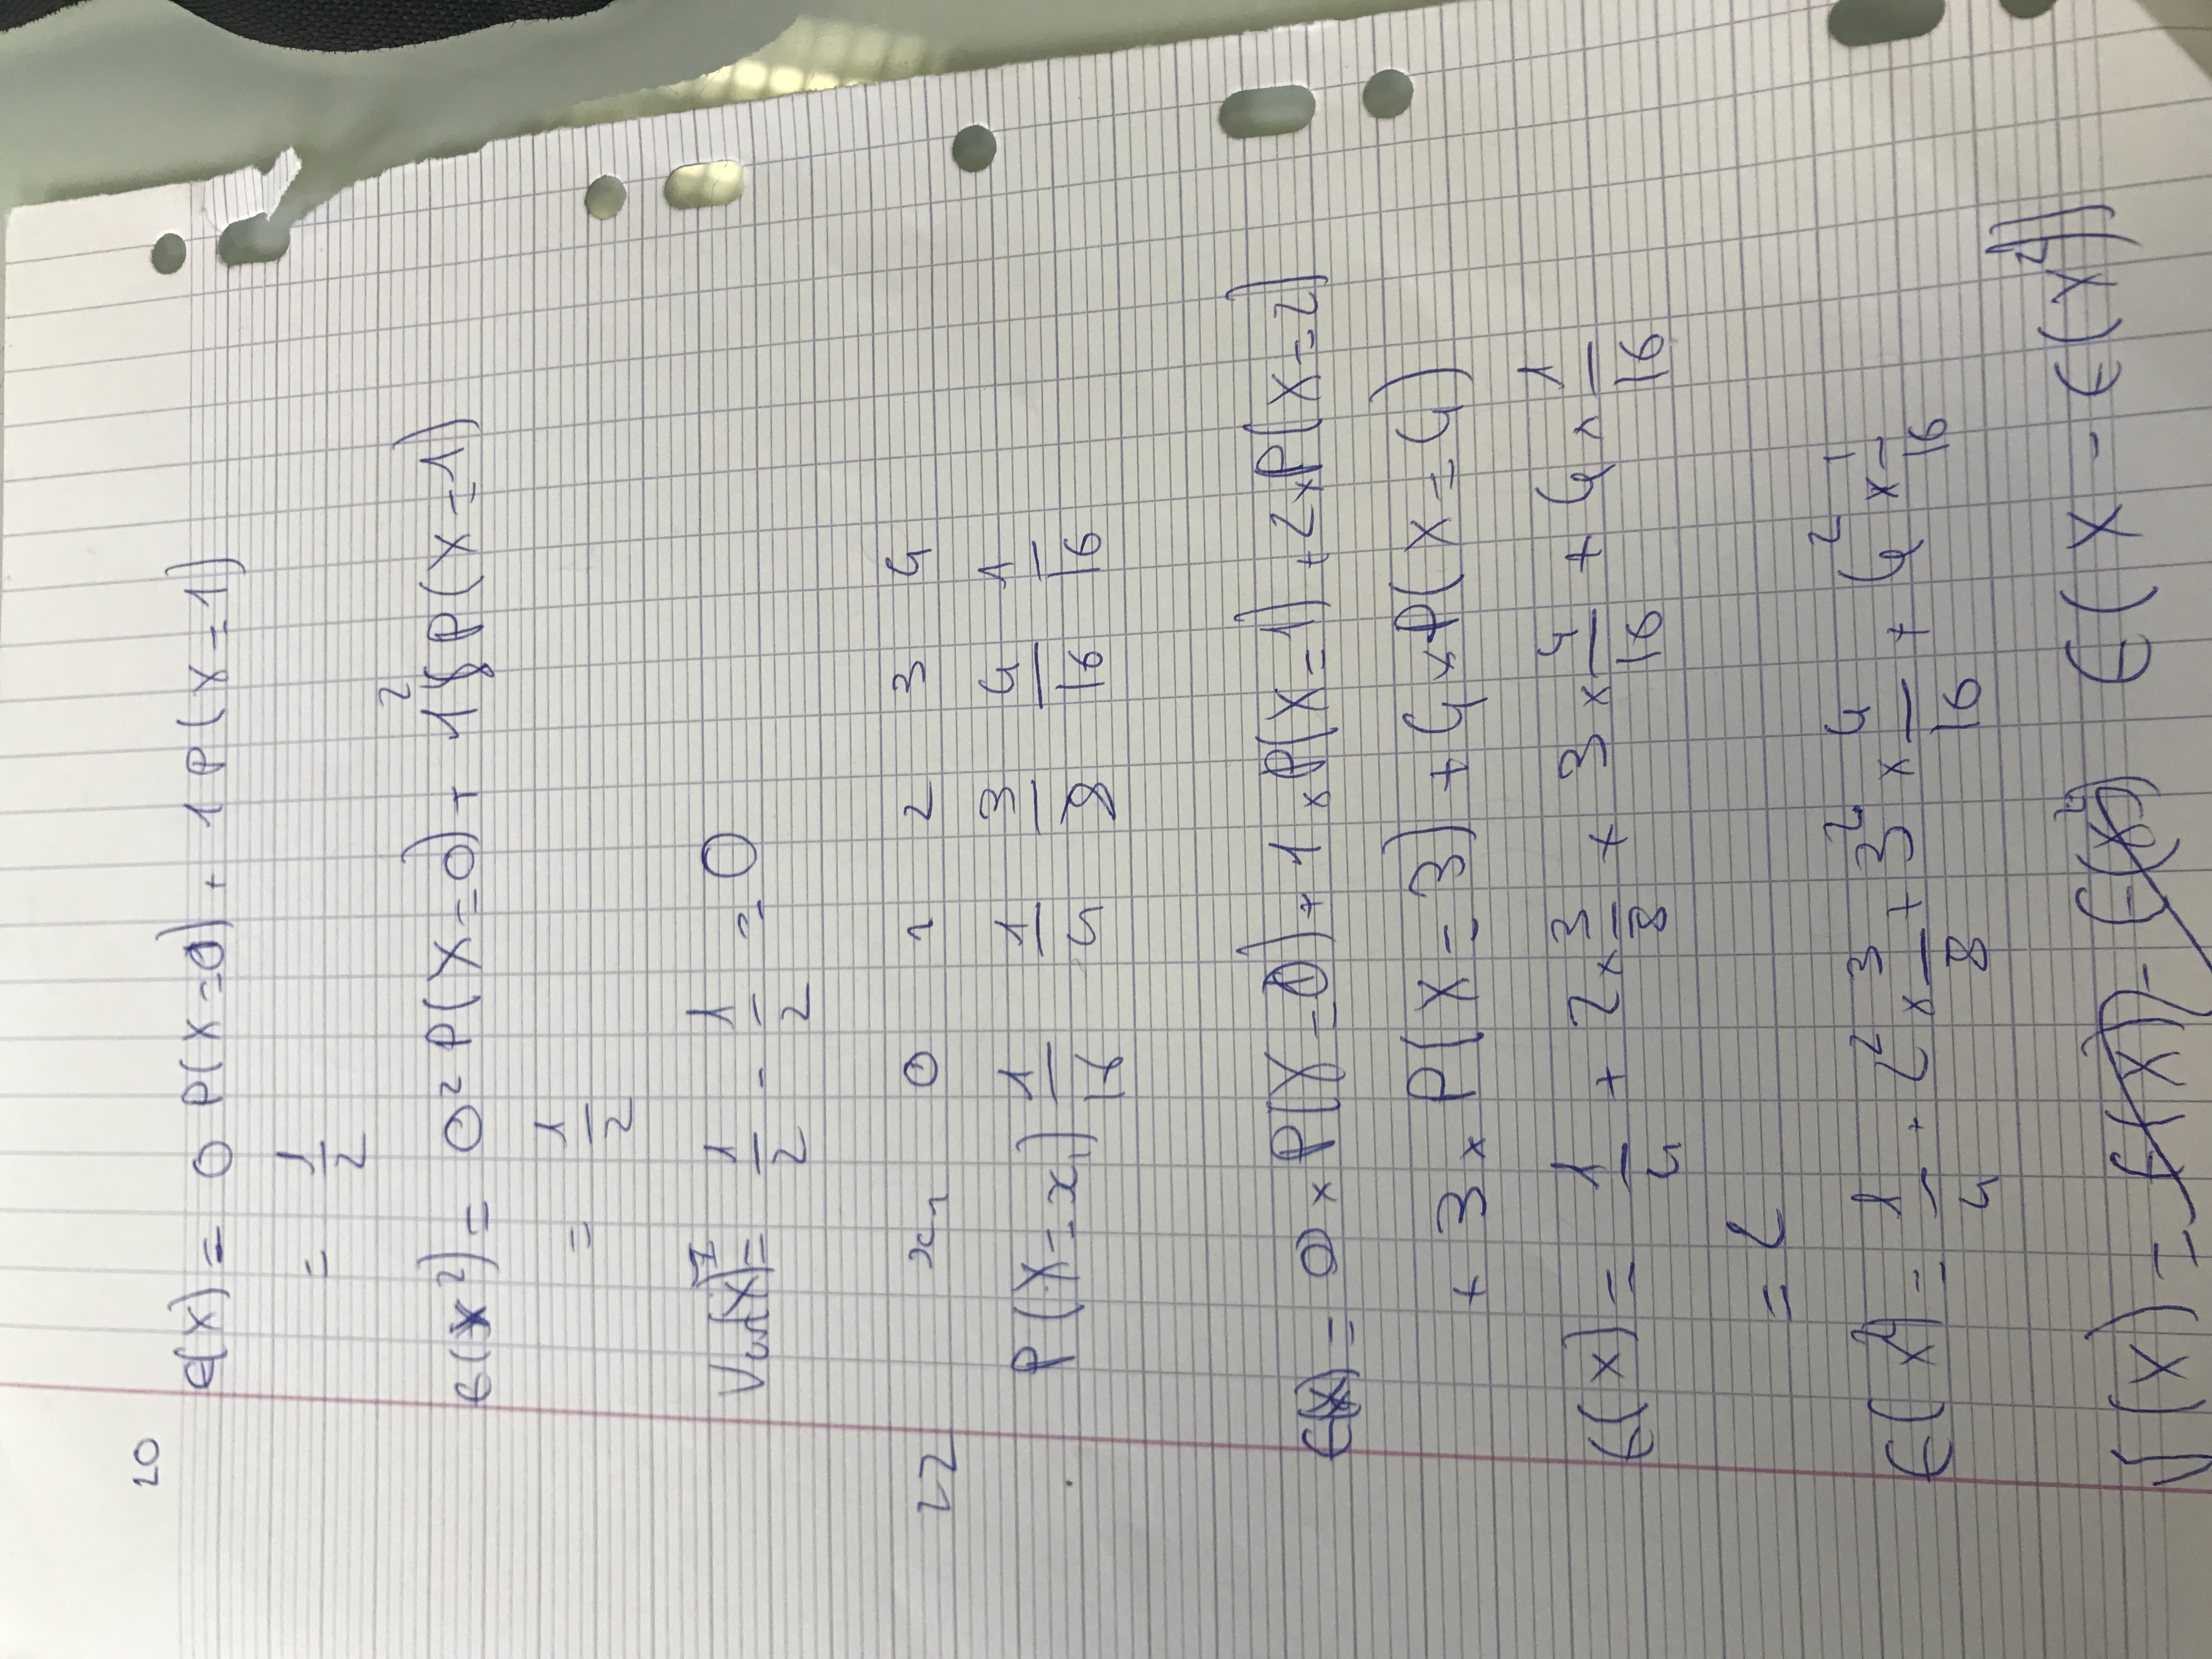 10
E(X) = 0 P(X=0) + 1 P(X=1)
= 1/2
E(X²) = 0² P(X=0) + 1² P(X=1)
= 1/2
Var(X) = 1/2 - 1/2 = 0
22 x₁ 0 1 2 3 4
P(X=x₁) 1/16 1/4 3/8 4/16 1/16
E(X) = 0 × P(X=0) + 1 × P(X=1) + 2 × P(X=2)
+ 3 × P(X=3) + 4 × P(X=4)
E(X) = 1/4 + 2 × 3/8 + 3 × 4/16 + 4 × 1/16
= 2
E(X²) = 1/4 + 2² × 3/8 + 3² × 4/16 + 4² × 1/16
V(X) = E(X) - E(X²) E(X - E(X²))